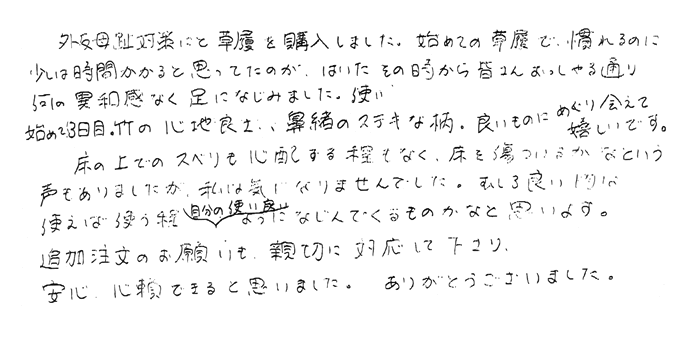 外反母趾対策にと草履を購入しました。始めての草履で、慣れるのに
少しは時間かかると思ってたのが、はいたその時から皆さんおっしゃる通り
何の異和感なく足になじみました。使い
始めて3日目。竹の心地良さ、鼻緒のステキな柄。良いものにめぐり会えて
嬉しいです。
床の上でのスベリも心配する程もなく、床を傷つけるかなという
声もありましたが、私は気になりませんでした。むしろ良い
使えば使う程自分の使い良いようになじんでくるものかなと思います。
追加注文のお願いも、親切に対応して下さり、
安心、心頼できると思いました。 ありがとうございました。